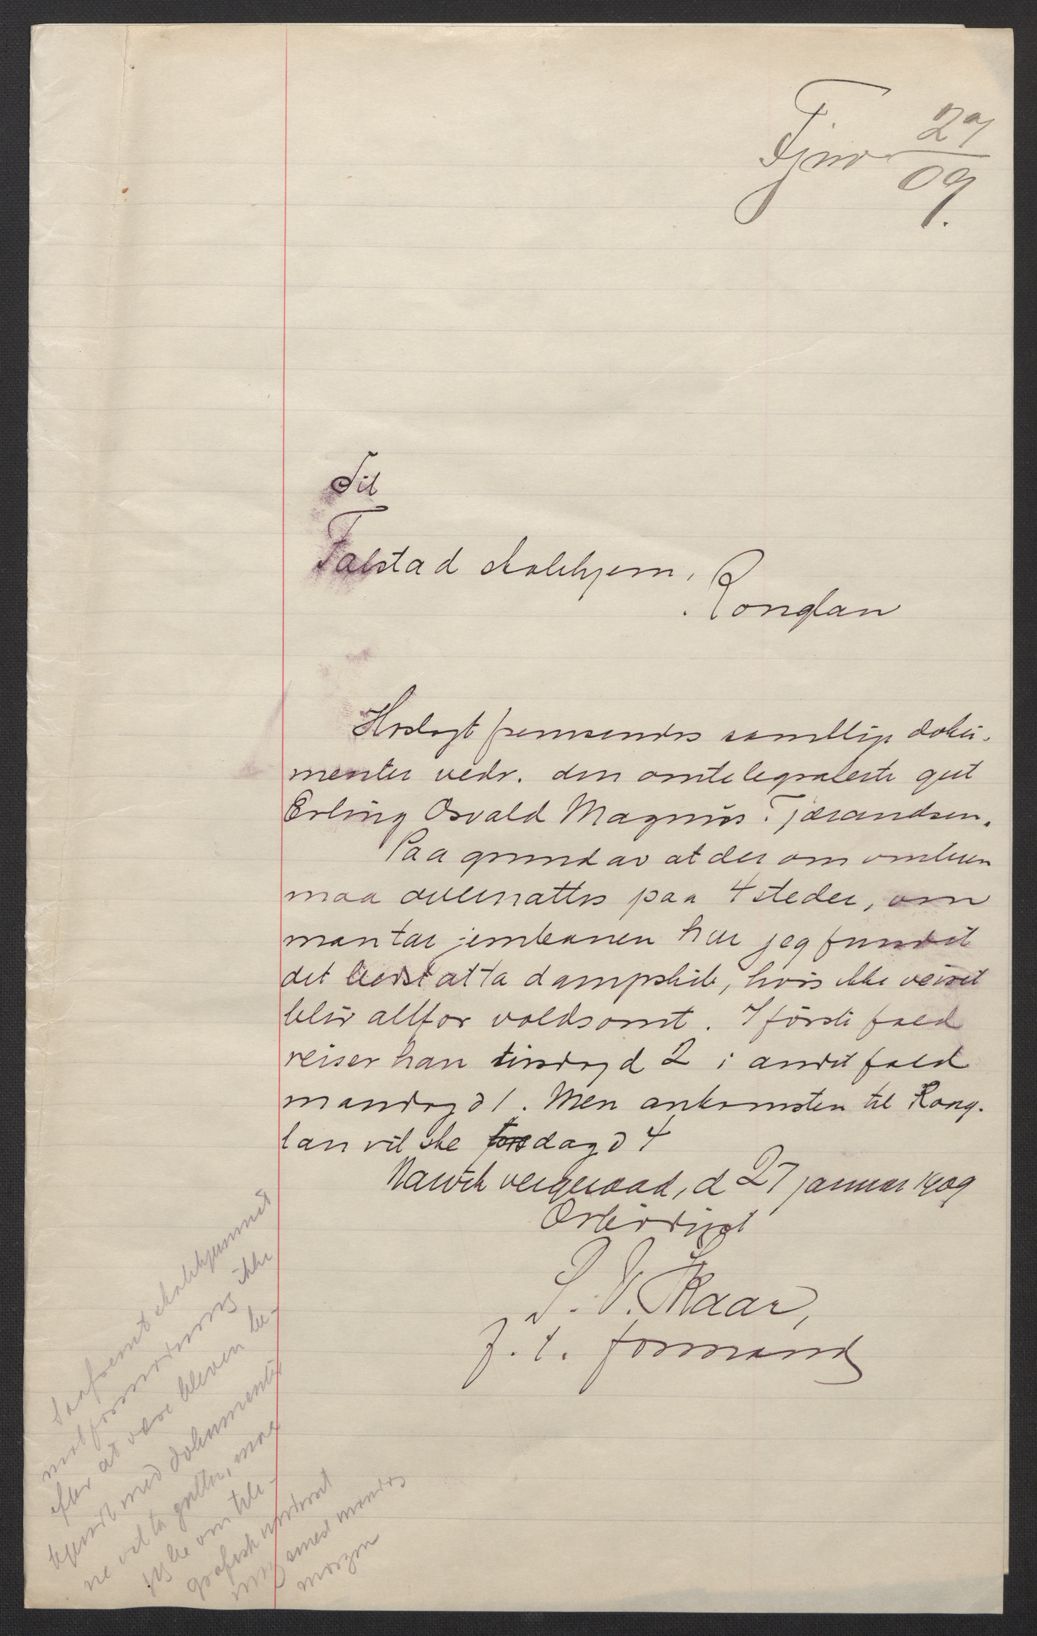 Fjnr 27/09.
Til
Falstad skolehjem,
Ronglan
Hoslagt fremsendes samtlige doku-
menter vedr. den omtelegraferte gut
Erling Osvald Magnus Tjærandsen.
Paa grund av at der om omveien
maa overnattes paa 4 steder, om
man tar jernbanen har jeg fundet
det bedst at ta dampskib, hvis ikke veiret
blir altfor voldsomt. I første fald
reiser han tirsdag d 2 i andet fald
mandag d 1. Men ankomsten til Rong-
lan vil ske torsdag d 4
Narvik vergeraad, d 27 januar 1909
Ærbødigst
S. V. Skaar,
f. t. formand
Saafremt skolehjemmet
mot formodning ikke
efter at være bleven be-
kjendt med dokumente
ne vil ta gutten, maa
jeg be om tele-
grafisk underret
ning senest mandag
morgen